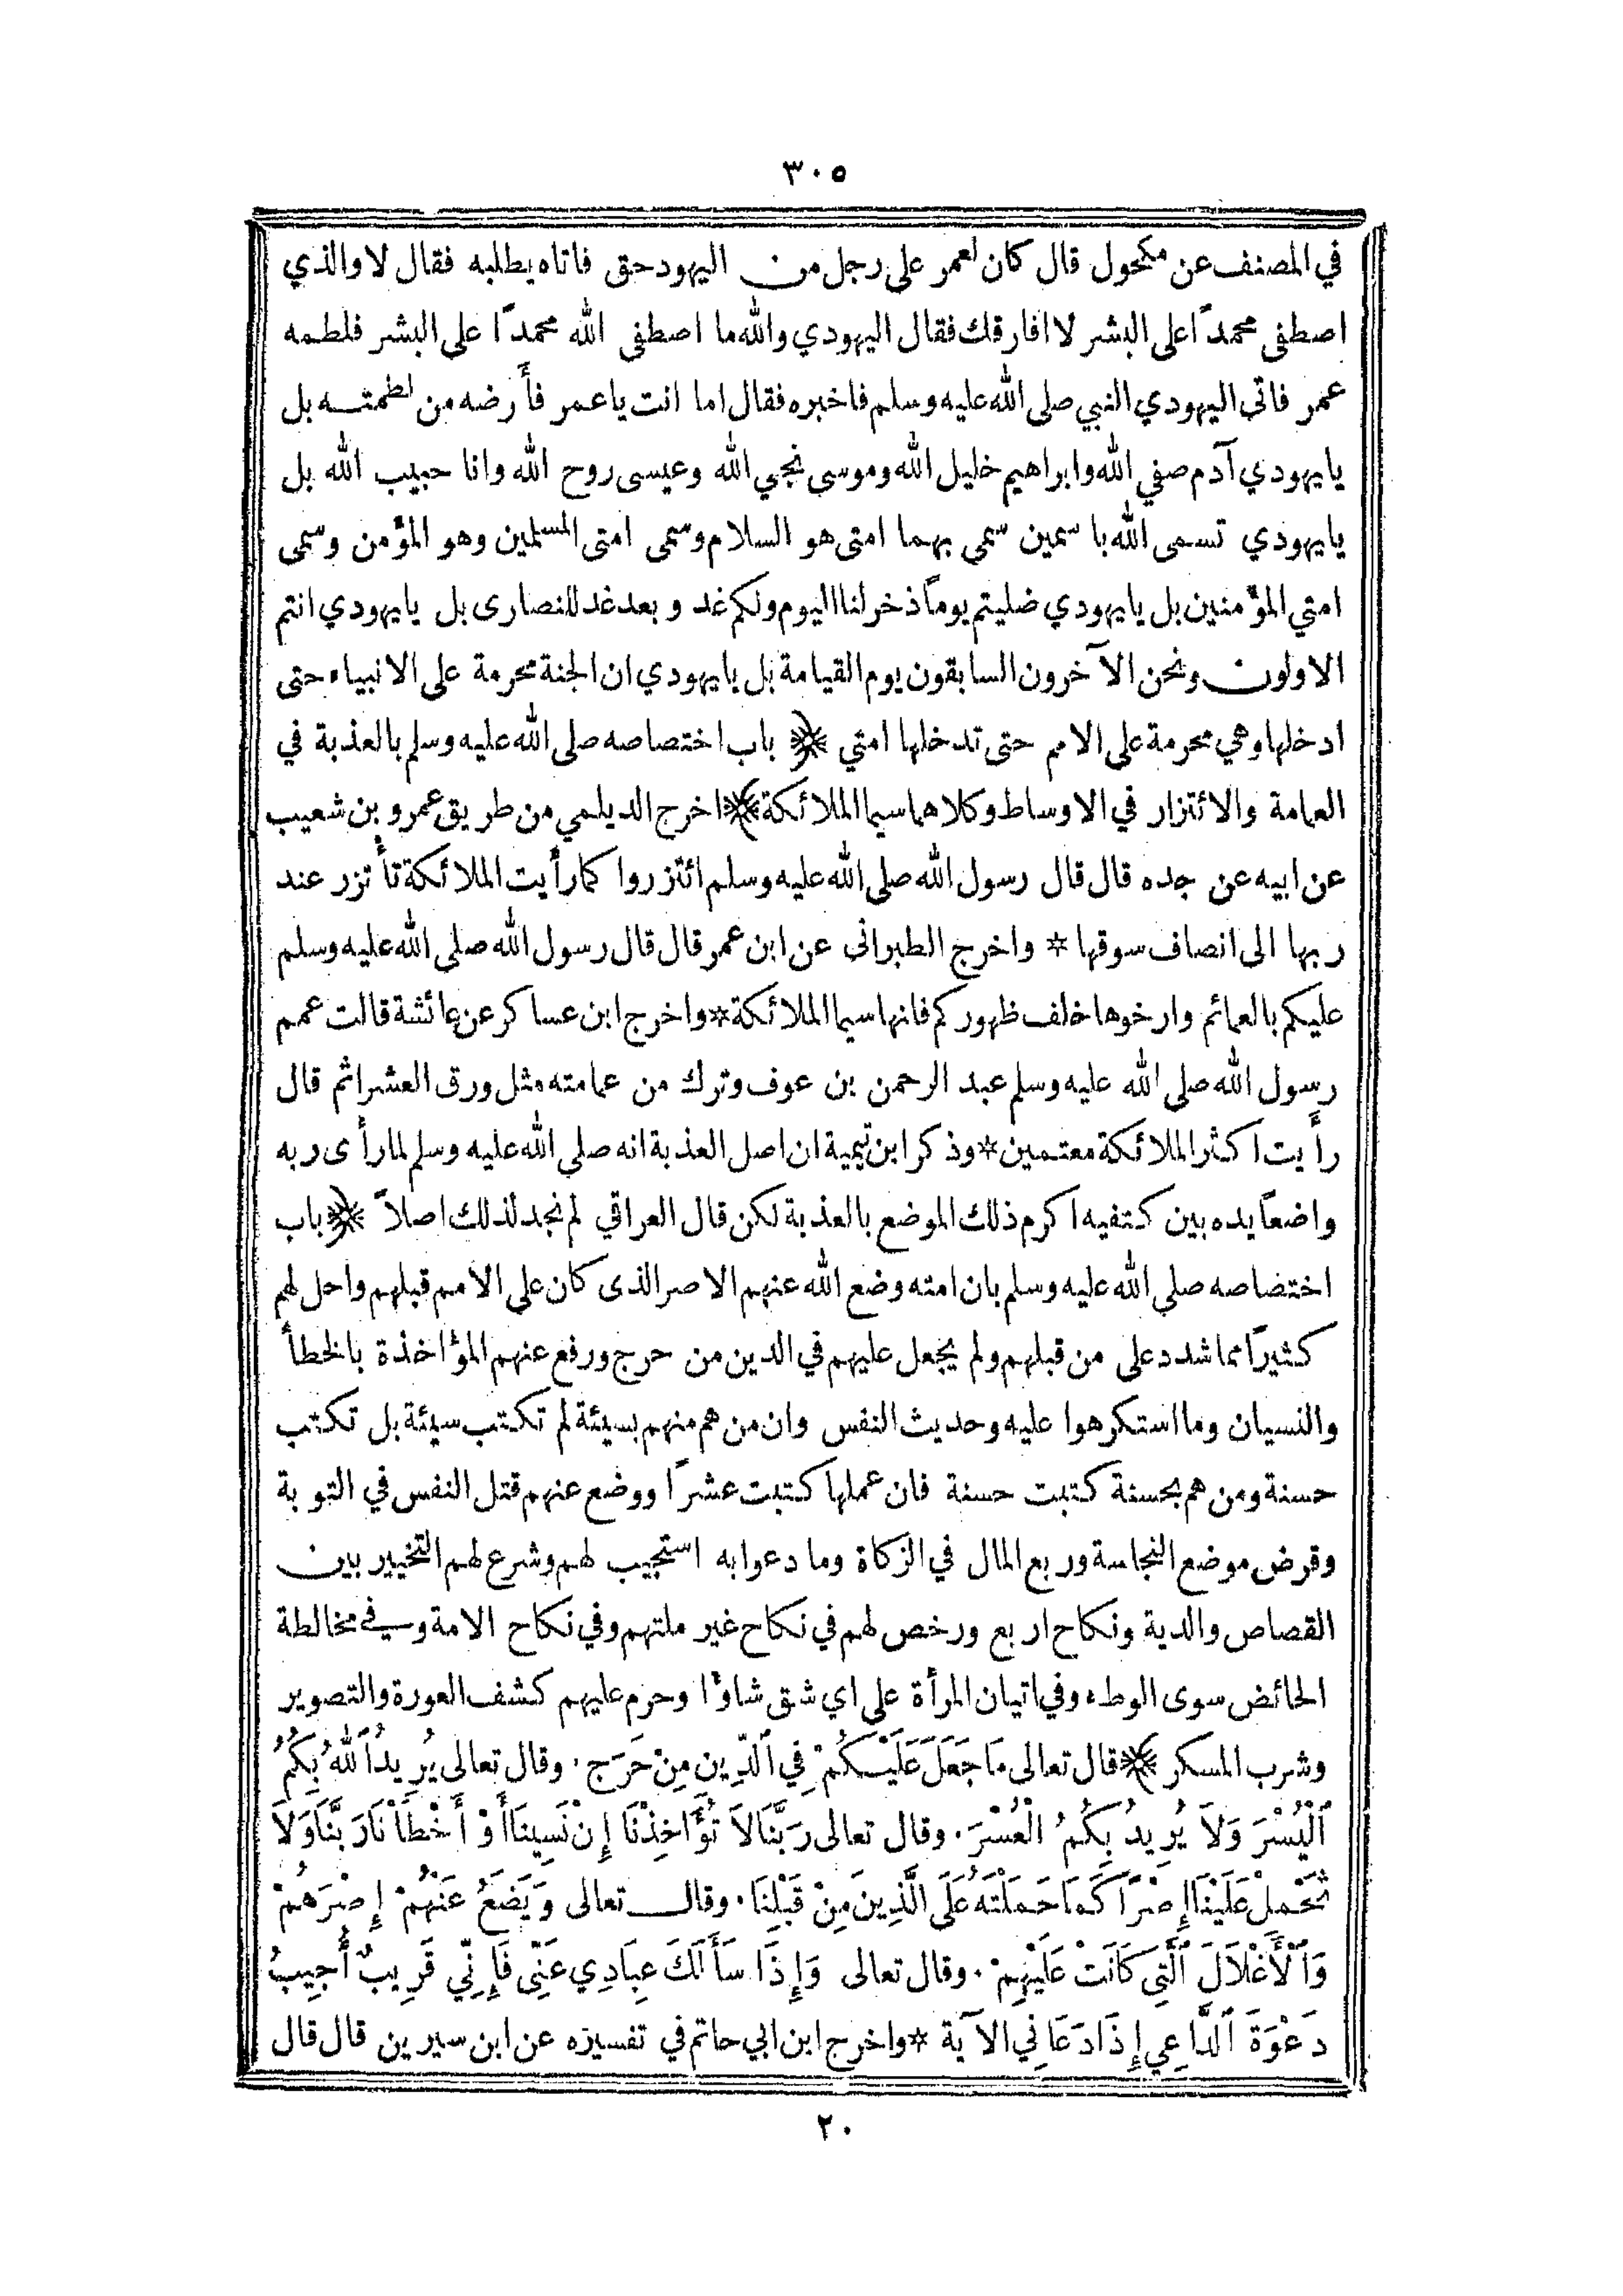 ٣٠٥
في المصنف عن مكحول قال كان لعمر على رجل من اليهود حق فاتاه يطلبه فقال لا والذي
اصطفى محمداً على البشر لا افارقك فقال اليهودي والله ما اصطفى الله محمداً على البشر فلطمه
عمر فاتى اليهودي النبي صلى الله عليه وسلم فاخبره فقال اما انت يا عمر فأرضه من لطمته بل
يا يهودي آدم صفي الله وابراهيم خليل الله وموسى نجي الله وعيسى روح الله وانا حبيب الله بل
يا يهودي تسمى الله باسمين سمى بهما امتى هو السلام وسمى امتى المسلمين وهو المؤمن وسمى
امتي المؤمنين بل يا يهودي ضليتم يوماً ذخر لنا اليوم ولكم غد وبعد غد للنصارى بل يا يهودي انتم
الاولون ونحن الآخرون السابقون يوم القيامة بل يا يهودي ان الجنة محرمة على الانبياء حتى
ادخلها وهي محرمة على الامم حتى تدخلها امتي ﴿ باب اختصاصه صلى الله عليه وسلم بالعذبة في
العمامة والائتزار في الاوساط وكلاهما سيما الملائكة ﴾ اخرج الديلمي من طريق عمرو بن شعيب
عن ابيه عن جده قال قال رسول الله صلى الله عليه وسلم ائتزروا كما رأيت الملائكة تأتزر عند
ربها الى انصاف سوقها * واخرج الطبرانى عن ابن عمر قال قال رسول الله صلى الله عليه وسلم
عليكم بالعمائم وارخوها خلف ظهوركم فانها سيما الملائكة * واخرج ابن عساكر عن عائشة قالت عمم
رسول الله صلى الله عليه وسلم عبد الرحمن بن عوف وترك من عمامته مثل ورق العشر اثم قال
رأيت اكثر الملائكة معتمين * وذكر ابن تيمية ان اصل العذبة انه صلى الله عليه وسلم لما رأى ربه
واضعاً يده بين كتفيه اكرم ذلك الموضع بالعذبة لكن قال العراقي لم نجد لذلك اصلاً ﴿ باب
اختصاصه صلى الله عليه وسلم بان امته وضع الله عنهم الاصر الذى كان على الامم قبلهم واحل لهم
كثيراً مما شدد على من قبلهم ولم يجعل عليهم في الدين من حرج ورفع عنهم المؤاخذة بالخطأ
والنسيان وما استكرهوا عليه وحديث النفس وان من هم منهم بسيئة لم تكتب سيئة بل تكتب
حسنة ومن هم بحسنة كتبت حسنة فان عملها كتبت عشراً ووضع عنهم قتل النفس في التوبة
وقرض موضع النجاسة وربع المال في الزكاة وما دعوا به استجيب لهم وشرع لهم التخيير بين
القصاص والدية ونكاح اربع ورخص لهم في نكاح غير ملتهم وفي نكاح الامة وفي مخالطة
الحائض سوى الوطء وفي اتيان المرأة على اي شق شاؤا وحرم عليهم كشف العورة والتصوير
وشرب المسكر ﴾ قال تعالى مَا جَعَلَ عَلَيْكُمْ فِي ٱلدِّينِ مِنْ حَرَجٍ . وقال تعالى يُرِيدُ ٱللهُ بِكُمُ
ٱلْيُسْرَ وَلاَ يُرِيدُ بِكُمُ الْعُسْرَ . وقال تعالى رَبَّنَا لاَ تُؤَاخِذْنَا إِنْ نَسِينَا أَوْ أَخْطَأْنَا رَبَّنَا وَلاَ
تَحْمِلْ عَلَيْنَا إِصْرًا كَمَا حَمَلْتَهُ عَلَى الَّذِينَ مِنْ قَبْلِنَا . وقال تعالى وَيَضَعُ عَنْهُمْ إِصْرَهُمْ
وَٱلْأَغْلاَلَ ٱلَّتِي كَانَتْ عَلَيْهِمْ . وقال تعالى وَإِذَا سَأَلَكَ عِبَادِي عَنِّى فَإِنِّي قَرِيبٌ أُجِيبُ
دَعْوَةَ ٱلدَّاعِي إِذَا دَعَانِي الآية * واخرج ابن ابي حاتم في تفسيره عن ابن سيرين قال قال
٢٠